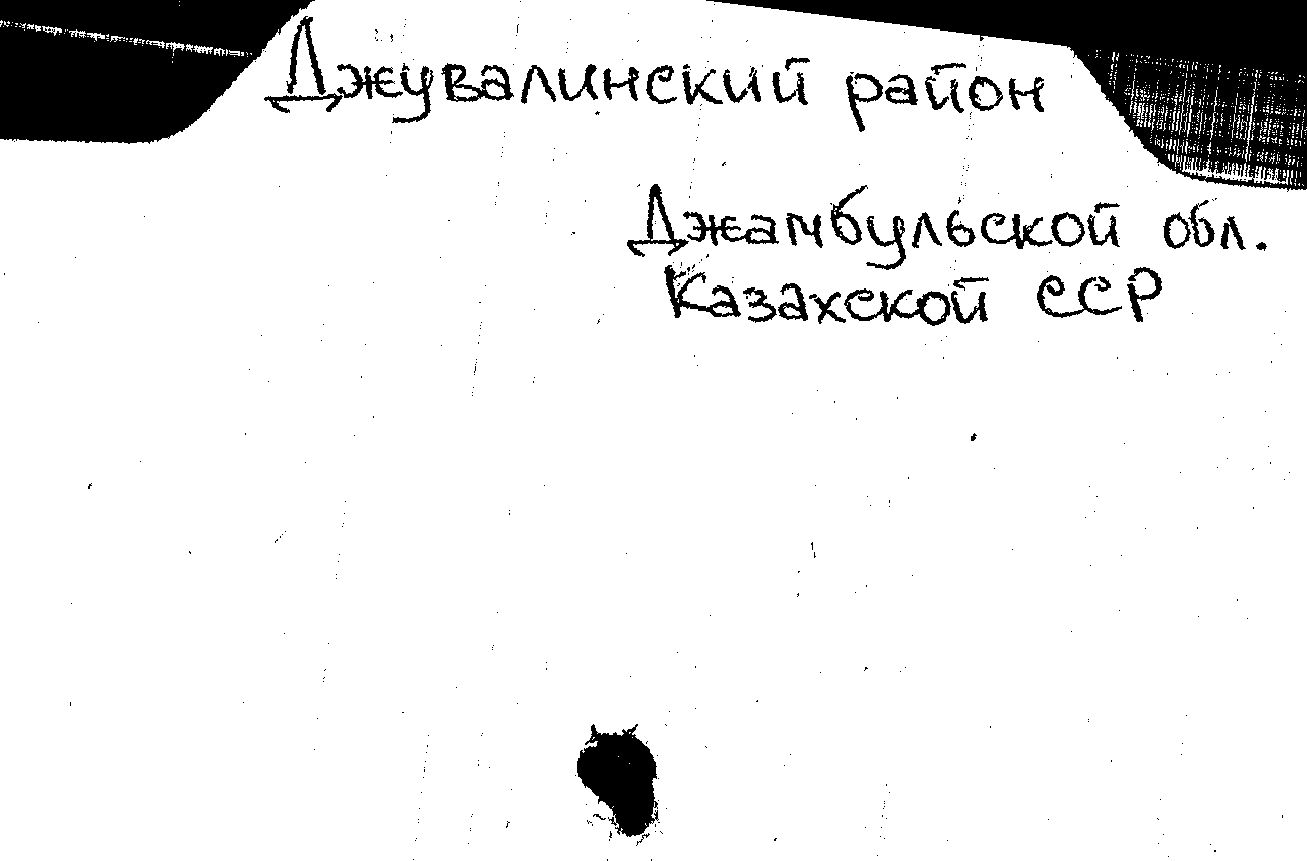 Джувалинский район
Джамбульской обл.
Казахской ССР